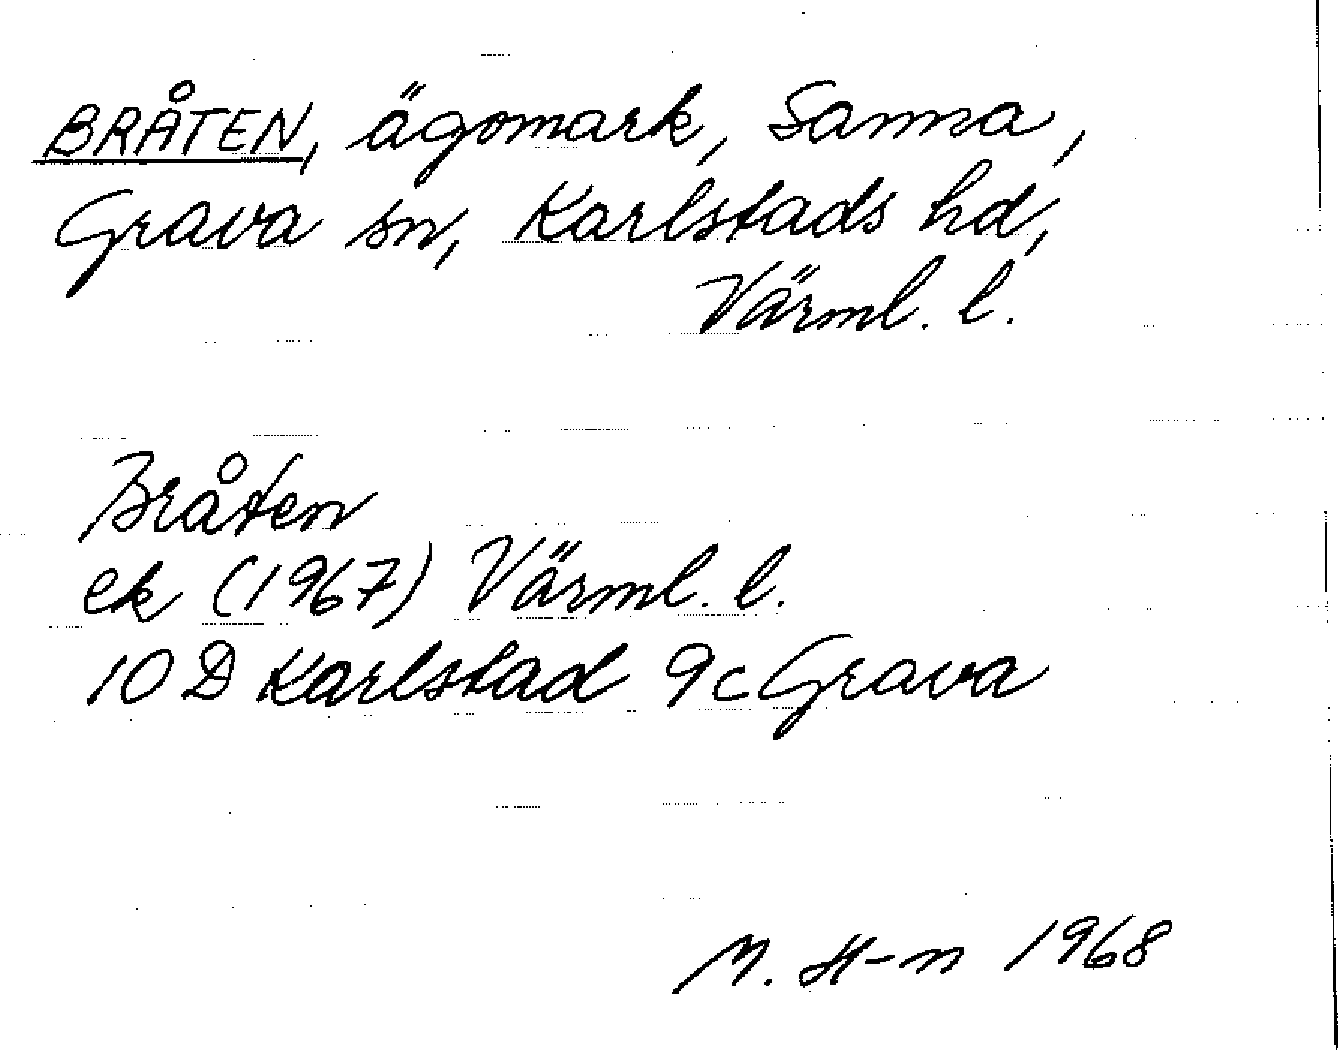 BRÅTEN, ägomark, Sanna,
Grava sn, Karlstads hd,
Värml. l.
Bråten
ek (1967) Värml. l.
10 D Karlstad 9c Grava
M. H-n 1968